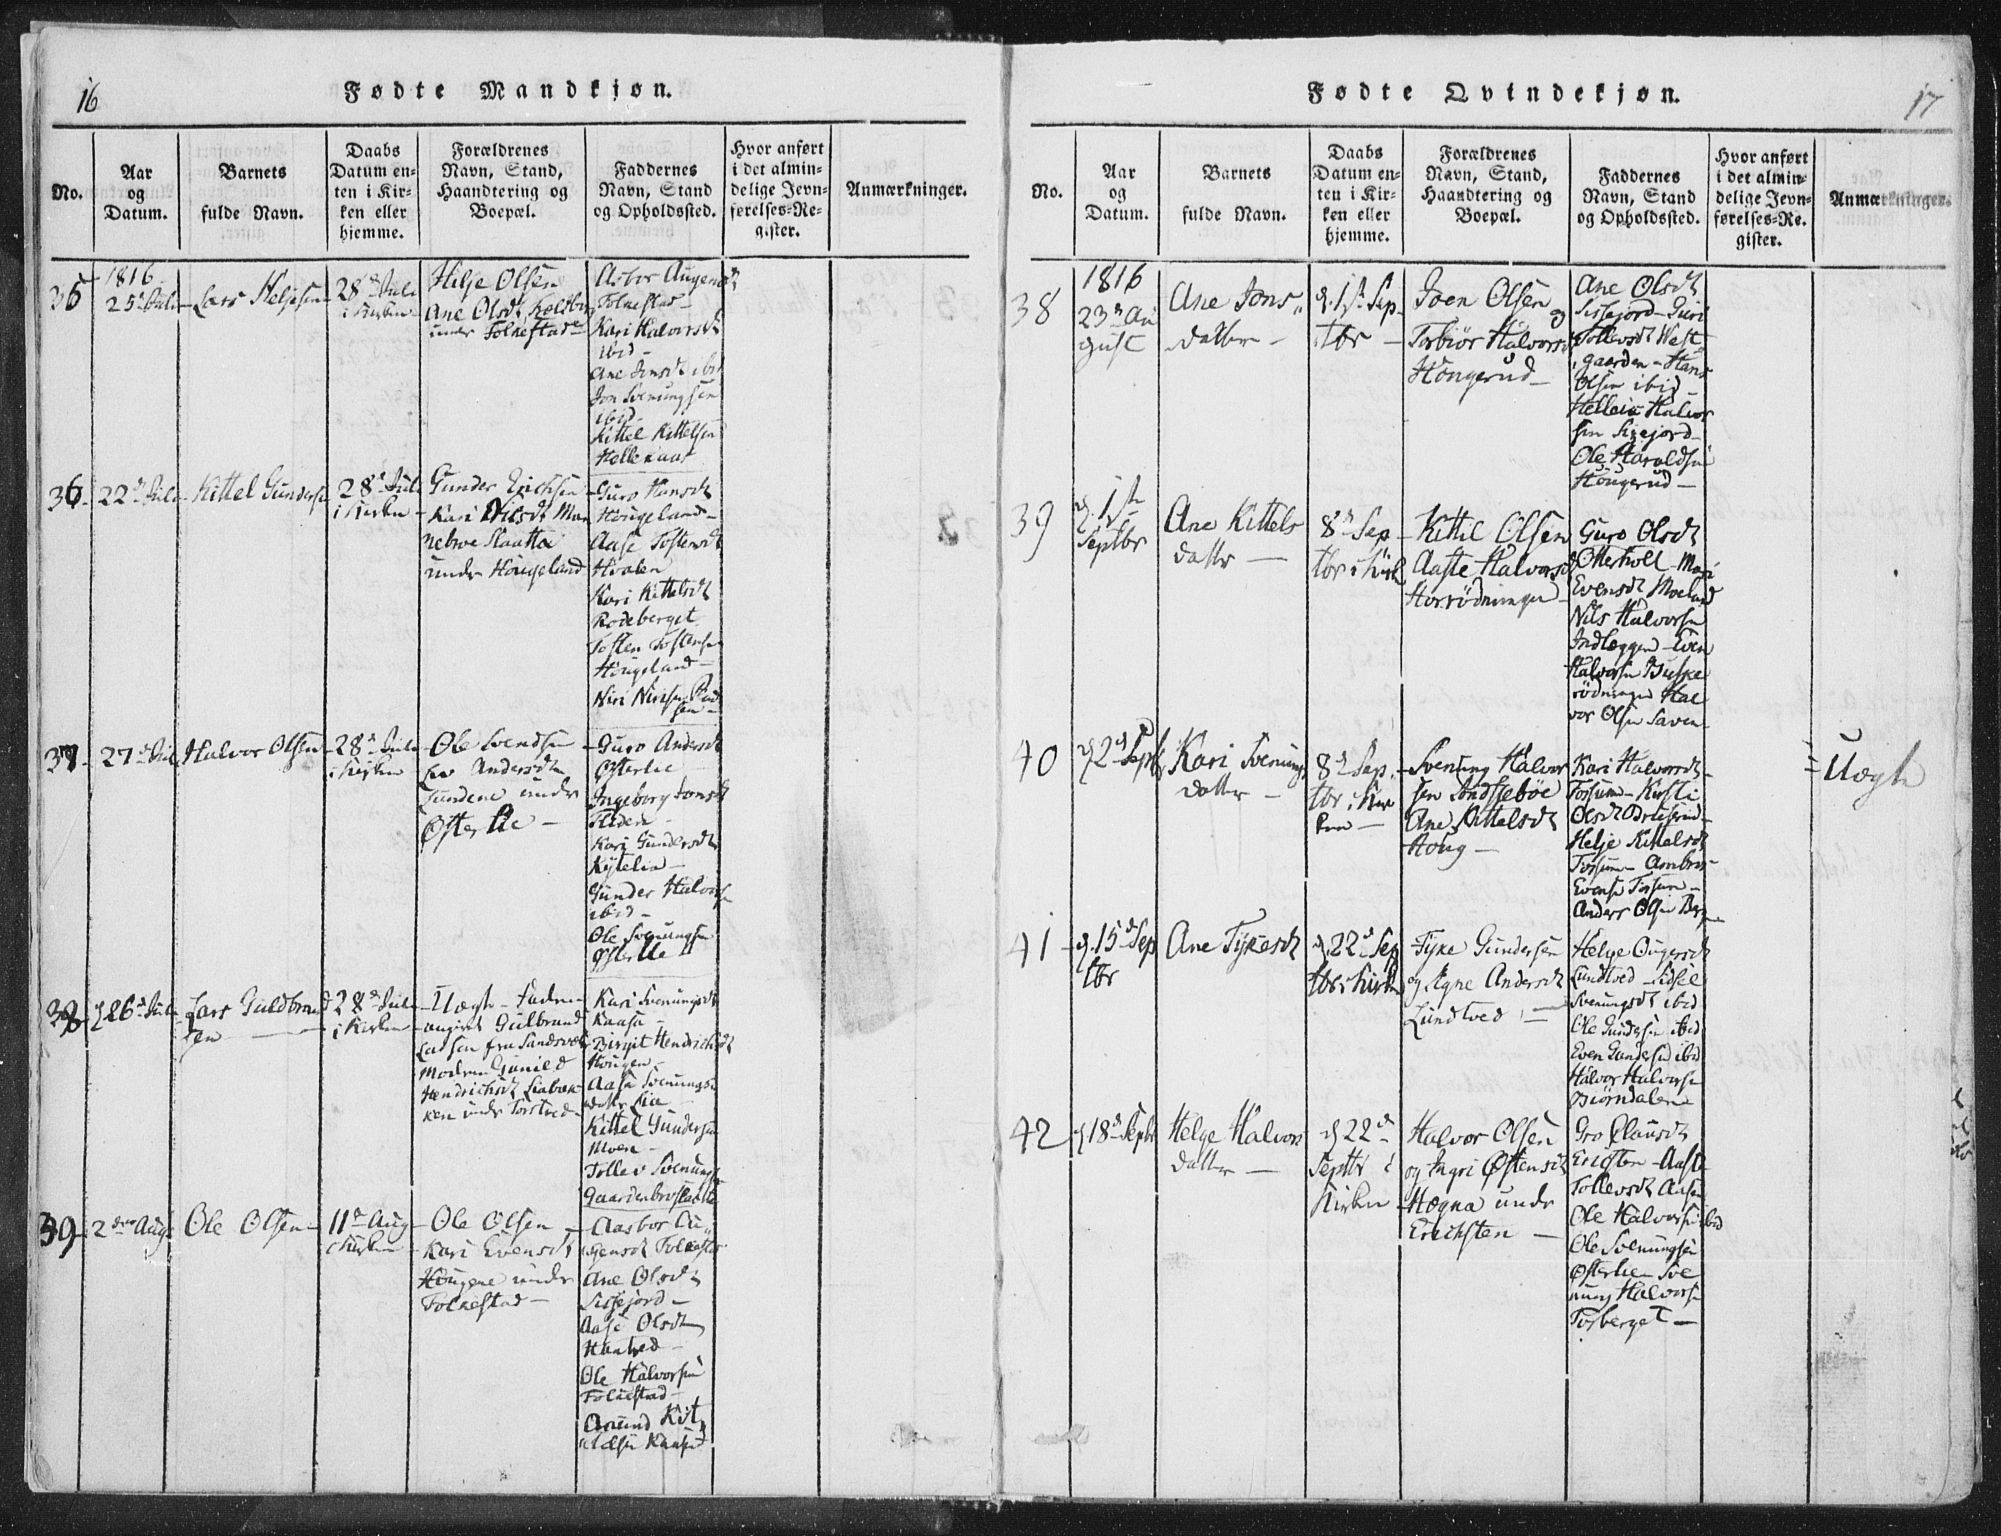 16
Fødte Mandkjøn.
No.
Aar
og
Datum.
Barnets
fulde Navn.
Daabs
Datum en-
ten i Kir-
ken eller
hjemme.
Forældrenes
Navn, Stand,
Haandtering og
Boepæl.
Faddernes
Navn, Stand
og Opholdssted.
Hvor anført
i det almin-
delige Jevn-
førelses-Re-
gister.
Anmærkninger.
35
1816
25d Juli
Lars Heljesen
28d Juli
i Kirken
Hilje Olsen
Ane Olsdt
under Folkestad
Asbor Augensdt
Folkestad
Kari Halvorsdt
ibid
Ane Jonsdt ibid
Jon Svenungsen
ibid
Kittel Kittelsen
Hellekaas
36
22d Juli
Kittel Gundersen
28d Juli
i Kirken
Gunder Erichsen
Kari Nilsdt
under Hougeland
Guro Hansdt
Hougeland
Aase Tostensdt
Hvalen
Kari Kittelsdt
Rodeberget
Tosten Tostensen
Hougeland
Niri Nirisen
37
27d Juli
Halvor Olsen
28d Juli
i Kirken
Ole Svendsen
Liv Andersdt
Lundene under
Østerlie
Guro Andersdt
Østerlie
Ingeborg Jonsdt
Kari Gundersdt
Kytelien
Gunder Halvors
ibid
Ole Svenungsen
Østerlie
38
26d Juli
Lars Guldbrand
sen
28d Juli
i Kirken
Uægte Faderen
angivet Gulbrand
Larsen fra Sandsvær
Moderen Gunild
Hendrichsdt Liabak
ken under Torstved
Kari Svenungsdt
Kaasa
Birgit Hendrichsdt
Hougen
Aase Svenungs
datter Lia
Kittel Gundersen
Moen
Tollev Svenungs
Gaardenbrosletta
39
2den Aug
Ole Olsen
11d Aug
i Kirken
Ole Olsen
Kari Evensdt
Hougene under
Folkestad
Aasbor Au
gensdt Folkestad
Ane Olsdt
Sissejord
Aase Olsdt
Hantved
Ole Halvorsen
Folkestad
Amund Kit
telsen Kaasa
17
Fødte Qvindekjøn.
No.
Aar
og
Datum.
Barnets
fulde Navn.
Daabs
Datum en-
ten i Kir-
ken eller
hjemme.
Forældrenes
Navn, Stand,
Haandtering og
Boepæl.
Faddernes
Navn, Stand
og Opholdssted.
Hvor anført
i det almin-
delige Jevn-
førelses-Re-
gister.
Anmærkninger.
38
1816
23d Au
gust
Ane Jons
datter
d. 1ste Sep
tbr
Joen Olsen og
Torbiør Halvorsdt
Hongerud
Ane Olsdt
Sissejord Guri
Tollevsdt West
gaarden Hans
Olsen ibid
Helleik Halvor
sen Sisejord
Ole Haroldsen
Hougerud
39
d. 1ste
Septbr
Ane Kittels
datter
8d Sep
tbr i Kirk
Kittil Olsen
Aaste Halvorsd
Horrødningen
Guro Olsdt
Otterholt Mari
Evensdt Moeland
Nils Halvorsen
Indleggen Even
Halvorsen Buske
rødningen Hal
vor Olsen Saven
40
d 2d Septbr
Kari Svenungs
datter
8d Sep
tbr i Kir
ken
Svenung Halvor
sen Sandssebøe
Ane Kittelsdt
Houg
Kari Halvorsdt
Forsum Kirsti
Olsdt Bruserud
Helje Kittelsdt
Forsum Ambros
Evensen Forsum
Anders Olsen Berg
Uægte
41
d. 15d Sep
tbr
Ane Tykesdt
d. 22d Sep
tbr i Kirken
Tyke Gundersen
og Agne Andersdt
Lundtved
Helge Ougersdt
Lundtved Sidsel
Svenungsdt ibid
Ole Gundersen ibid
Even Gundersen ibid
Halvor Halvorsen
Biørndalen
42
d 18d Septbr
Helge Halvors
datter
d 22d
Septbr i
Kirken
Halvor Olsen
og Ingri Østensdt
Høgna under
Erichsten
Gro Clausdt
Erichsten Aaste
Tollevsdt Aasen
Ole Halvorsen ibid
Ole Svenungsen
Østerlien Sve
nung Halvorsen
Torberget